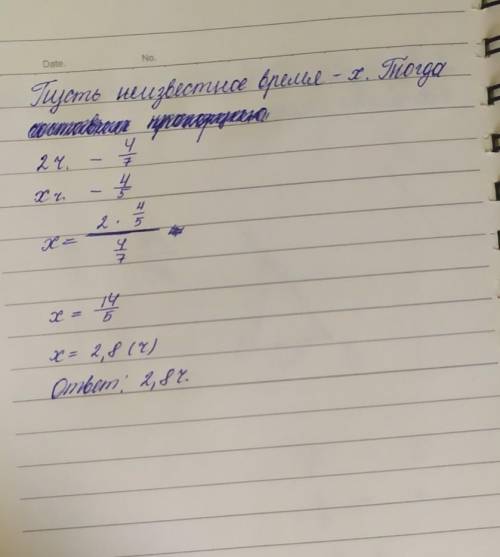 Date. No.
Пусть неизвестное время - x. Тогда
составим пропорцию:
2 ч. - 4/7
x ч. - 4/5
x = (2 · 4/5) / (4/7)
x = 14/5
x = 2,8 (ч)
Ответ: 2,8 ч.